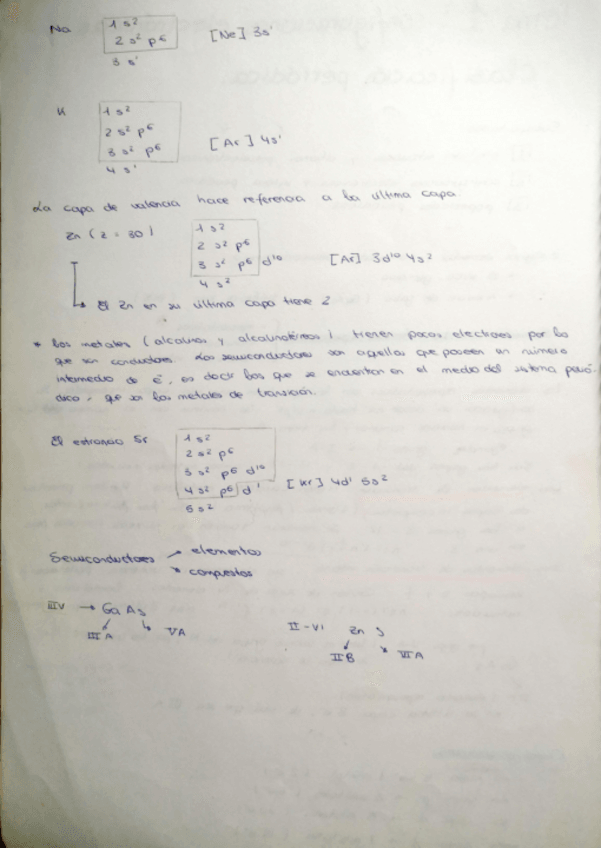 Na 1 s²
2 s² p⁶ [Ne] 3s¹
3 s¹
K 1 s²
2 s² p⁶
3 s² p⁶ [Ar] 4s¹
4 s¹
La capa de valencia hace referencia a la última capa.
Zn (z = 30) 1 s²
2 s² p⁶
3 s² p⁶ d¹⁰ [Ar] 3d¹⁰ 4s²
4 s²
El Zn en su última capa tiene 2
* Los metales (alcalinos y alcalinotérreos) tienen pocos electrones por lo
que son conductores. Los semiconductores son aquellos que poseen un número
intermedio de e⁻, es decir los que se encuentran en el medio del sistema perió-
dico, que son los metales de transición.
El estroncio Sr 1 s²
2 s² p⁶
3 s² p⁶ d¹⁰
4 s² p⁶ d¹ [Kr] 4d¹ 5s²
6 s²
Semiconductores → elementos
→ compuestos
III V → Ga As
III A VA
II-VI Zn S
II B VI A